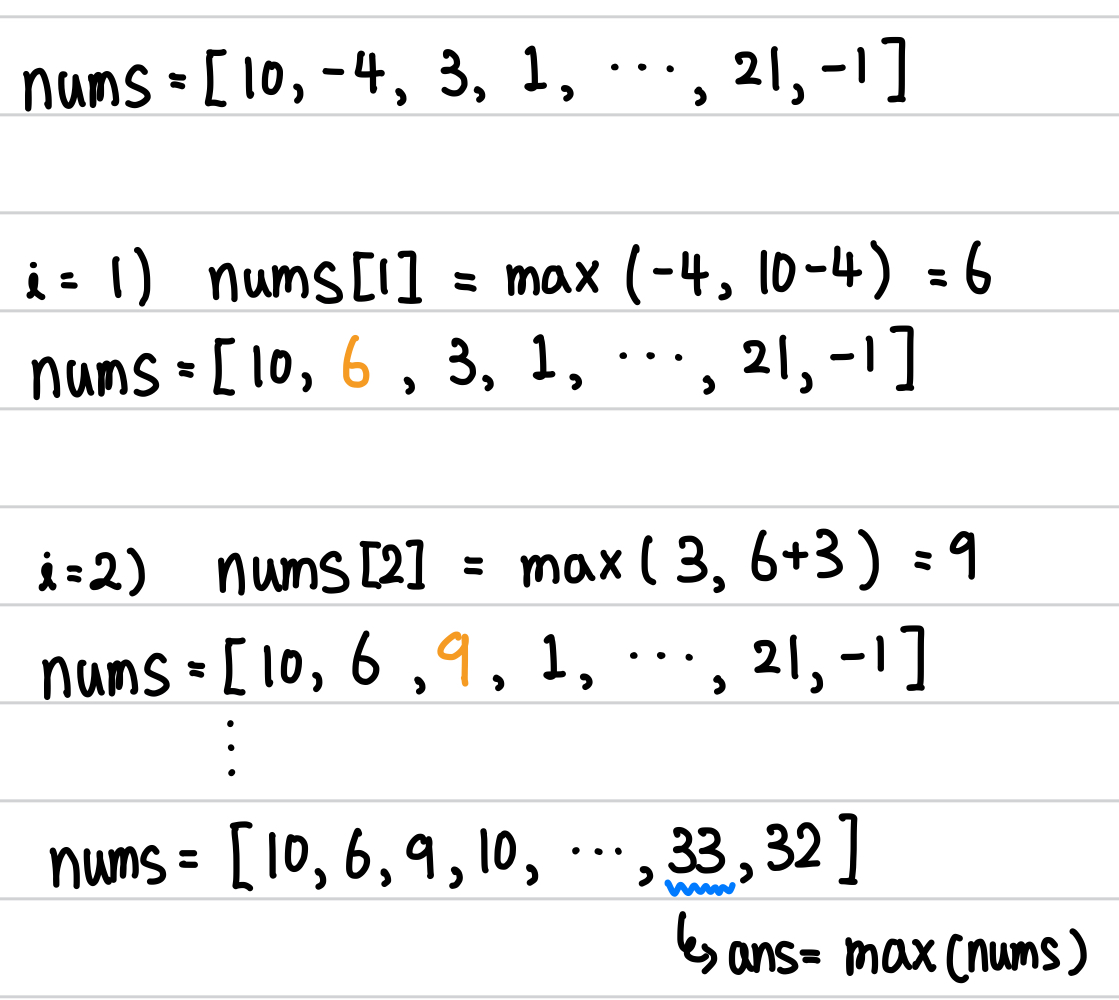 nums = [10, -4, 3, 1, ..., 21, -1]
i = 1) nums[1] = max (-4, 10-4) = 6
nums = [10, 6, 3, 1, ..., 21, -1]
i=2) nums[2] = max( 3, 6+3 ) = 9
nums = [10, 6, 9, 1, ..., 21, -1]
⋮
nums = [10, 6, 9, 10, ..., 33, 32]
↳ ans= max(nums)